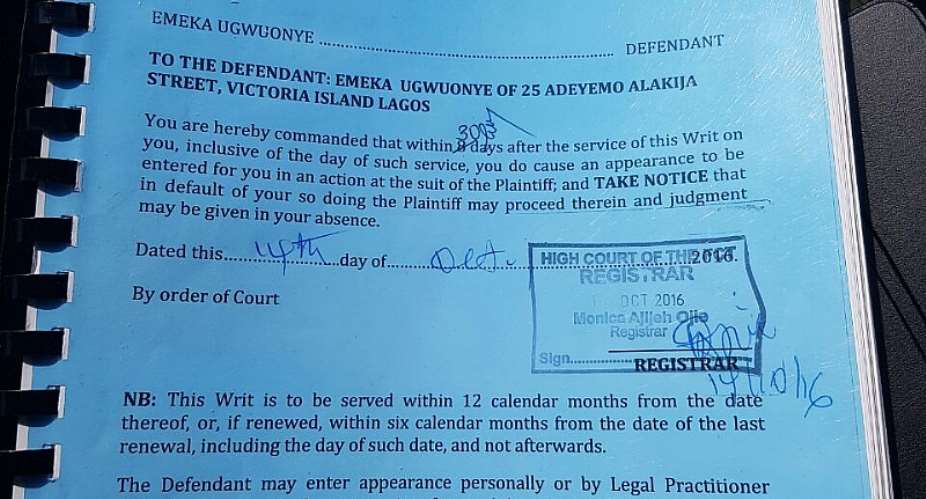 EMEKA UGWUONYE ........................................ DEFENDANT
TO THE DEFENDANT: EMEKA UGWUONYE OF 25 ADEYEMO ALAKIJA
STREET, VICTORIA ISLAND LAGOS
You are hereby commanded that within 30 days after the service of this Writ on
you, inclusive of the day of such service, you do cause an appearance to be
entered for you in an action at the suit of the Plaintiff; and TAKE NOTICE that
in default of your so doing the Plaintiff may proceed therein and judgment
may be given in your absence.
Dated this......14th......day of......Oct.......2016.
HIGH COURT OF THE FCT
REGISTRAR
OCT 2016
Monica Ajijeh Ojie
Registrar
Sign....................
By order of Court
REGISTRAR
14/10/16
NB: This Writ is to be served within 12 calendar months from the date
thereof, or, if renewed, within six calendar months from the date of the last
renewal, including the day of such date, and not afterwards.
The Defendant may enter appearance personally or by Legal Practitioner